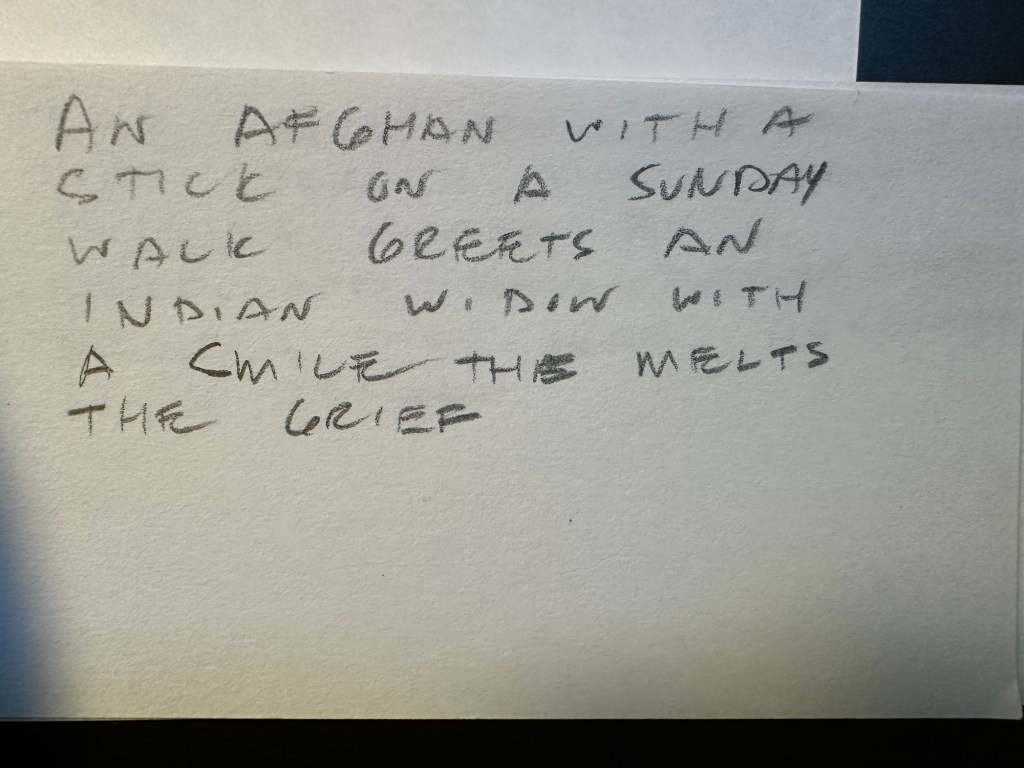 AN AFGHAN WITH A
STICK ON A SUNDAY
WALK GREETS AN
INDIAN WIDOW WITH
A SMILE THE MELTS
THE GRIEF